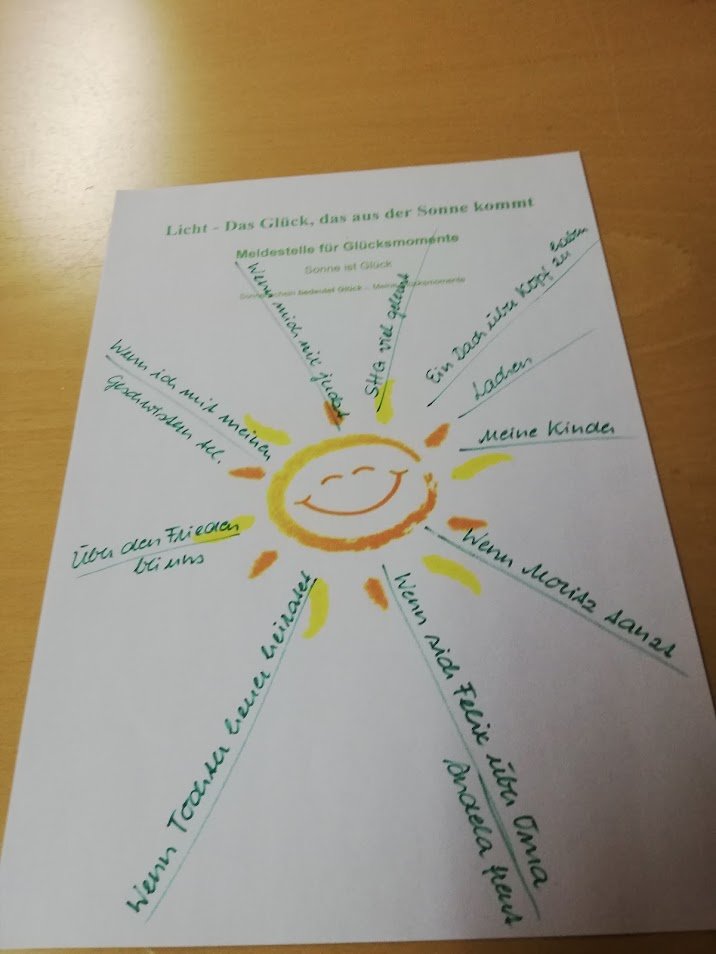 Licht - Das Glück, das aus der Sonne kommt
Meldestelle für Glücksmomente
Sonne ist Glück
Sonnenschein bedeutet Glück - Meine Glücksmomente
Wenn mich wie
SHG viel gelernt
Ein Dach über Kopf zu haben
Lachen
Meine Kinder
Wenn Moritz tanzt
Wenn sich Felix über Oma
Angela freut
Wenn Tochter heuer heiratet
Über den Frieden
bei uns
Wenn ich mit meinen
Geschwistern tel.